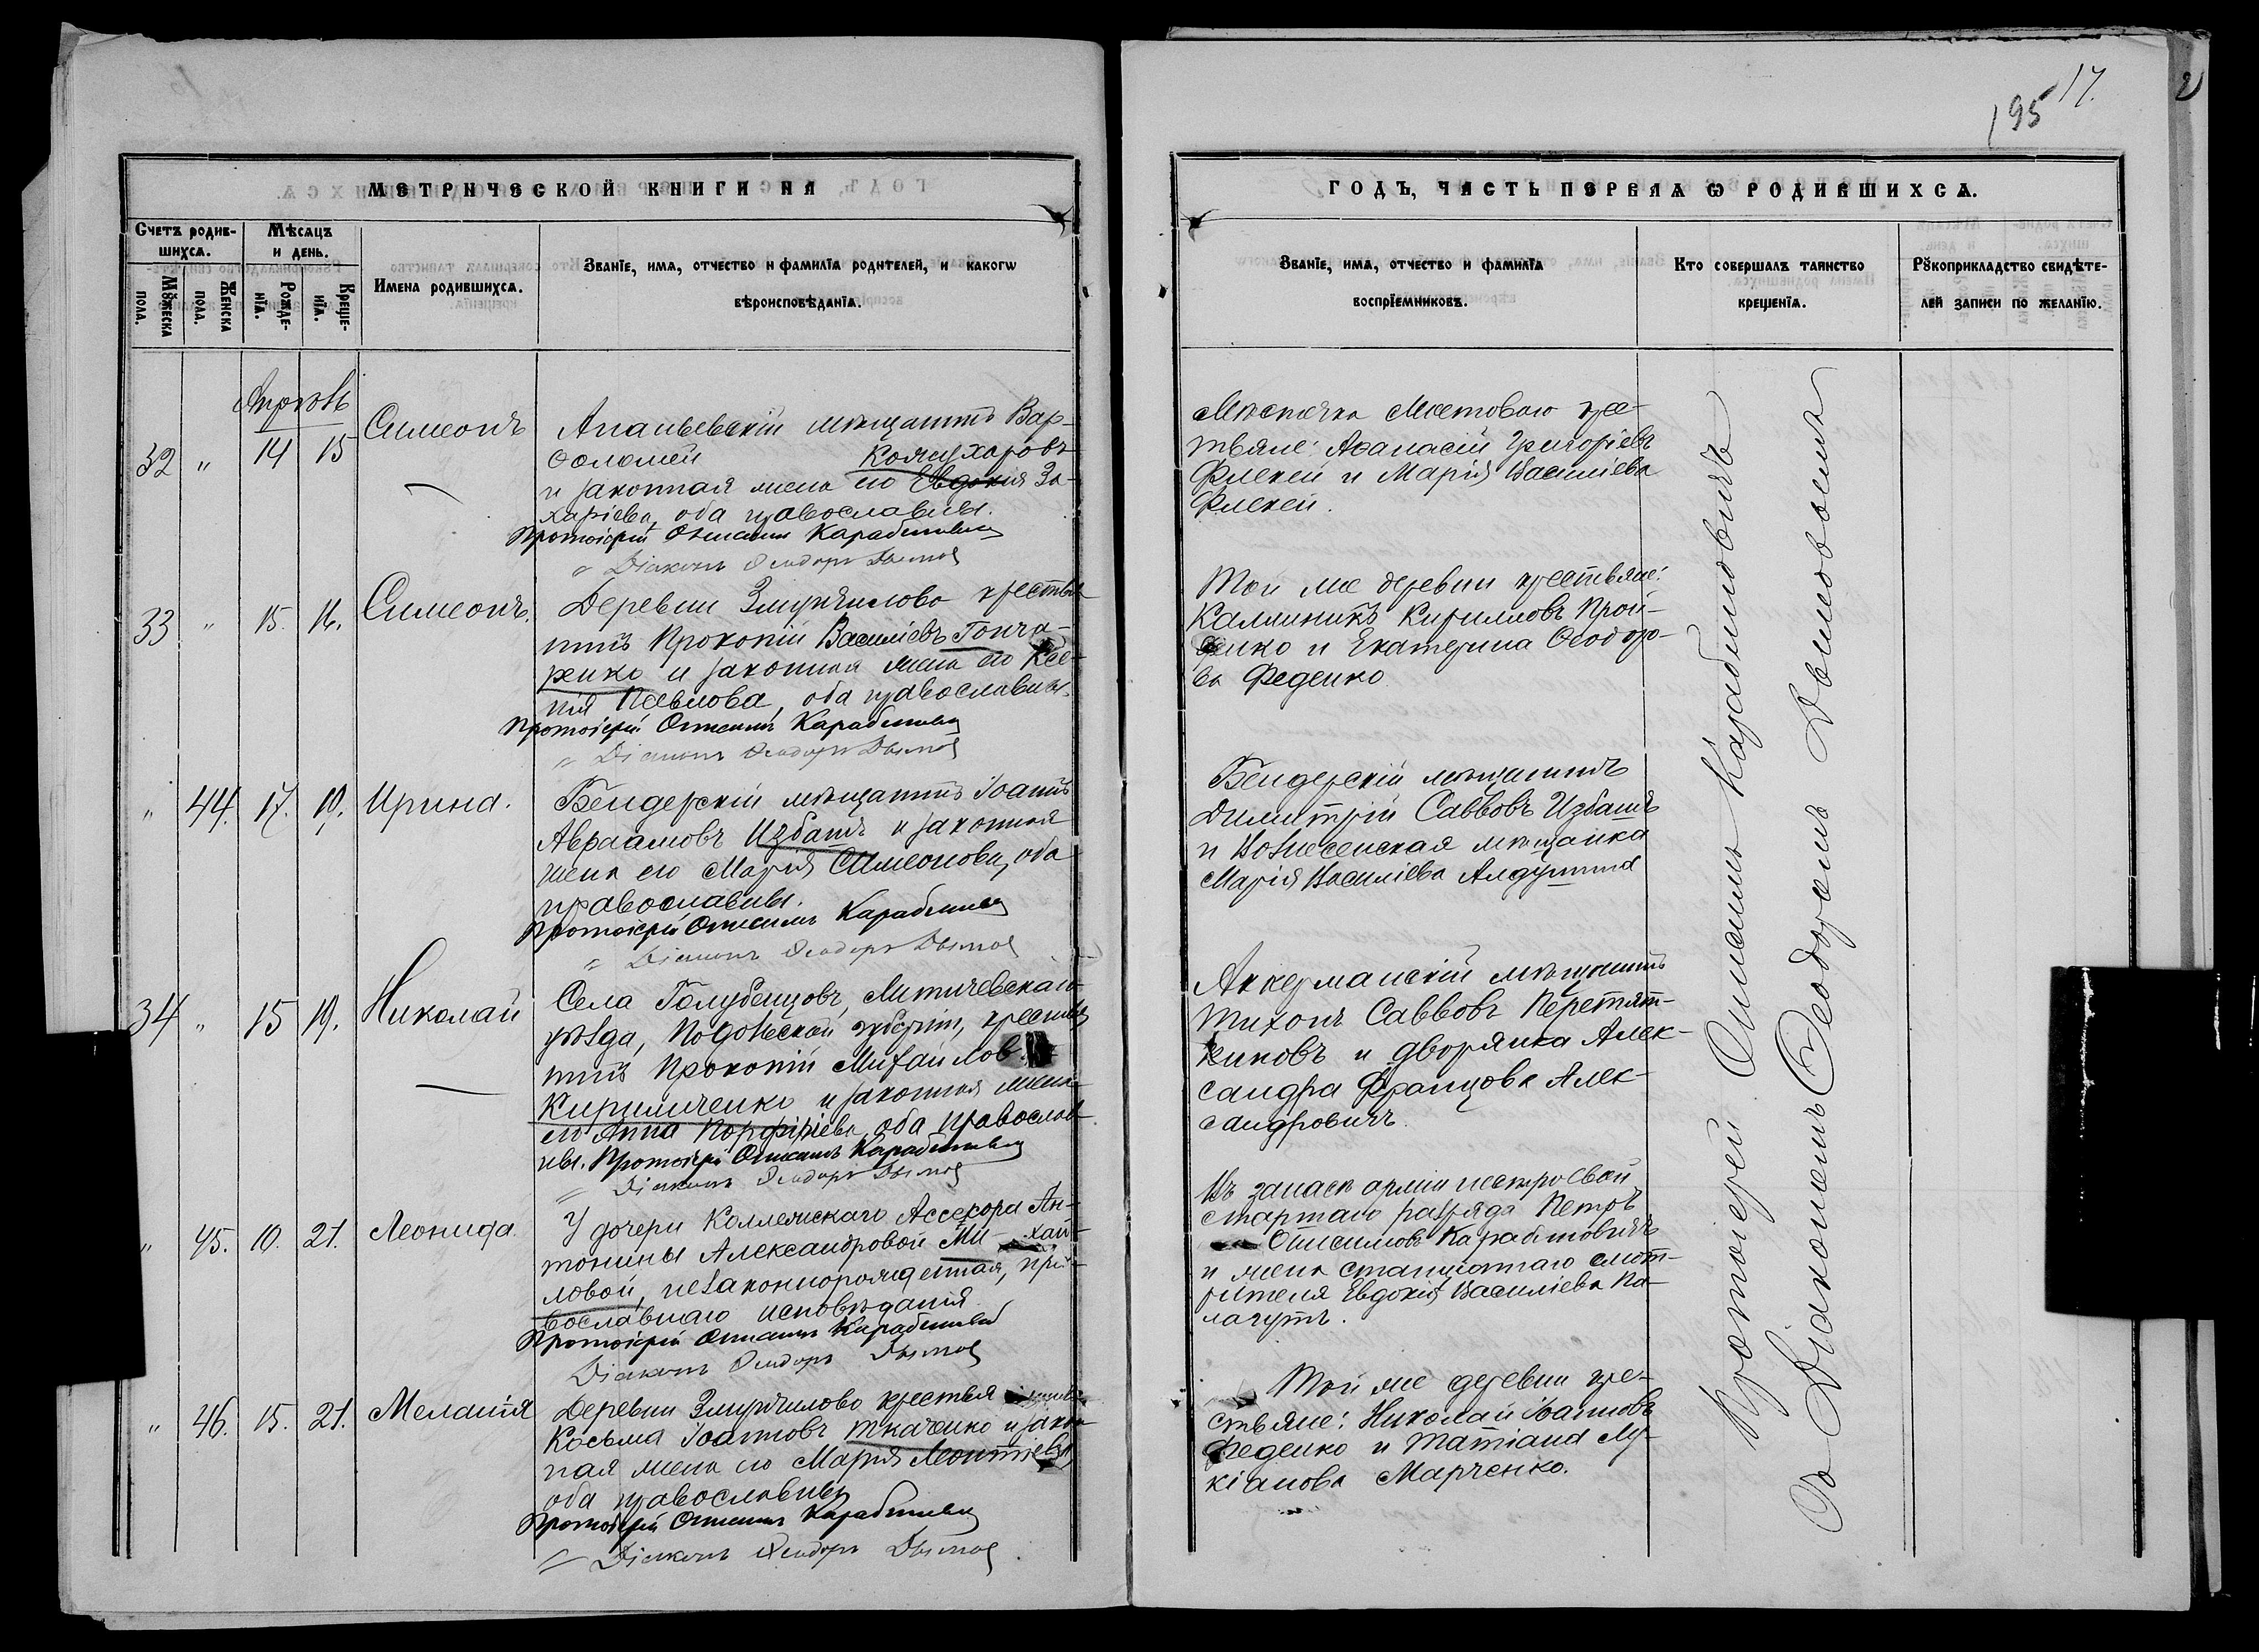 195 17.
2
МЕТРИЧЕСКОЙ КНИГИ НА
Счетъ родив-
шихсѧ.
Мѣсѧцъ
и день.
Мꙋжеска
пола.
Женска
пола.
Рожде-
нїѧ.
Креще-
нїѧ.
Имена родившихсѧ.
Званїе, имѧ, отчество и фамилїѧ родителей, и какогѡ
вѣроисповѣданїѧ.
Апрѣль
32 " 14 15 Симеонъ
Ананьевскій мѣщанинъ Вар-
ѳоломей Кожухаровъ
и законная жена его Евдокія За-
харіева, оба православны.
Протоіерей Онисимъ Карабинович
Діаконъ Ѳеодоръ
33 " 15. 16. Симеонъ.
Деревни Злиучилово крестья-
нинъ Прокопій Василіевъ Гонча-
ренко и законная жена его Ксе-
нія Павлова, оба православны.
Протоіерей Онисимъ Карабинович
Діаконъ Ѳеодоръ
" 44. 17. 19. Ирина.
Бендерскій мѣщанинъ Іоаннъ
Авраамовъ Избашъ и законная
жена его Марія Симеонова, оба
православны.
Протоіерей Онисимъ Карабинович
Діаконъ Ѳеодоръ
34 " 15 19. Николай
Села Голубенцовъ, Литичевскаго
уѣзда, Подольской губерніи, крестья-
нинъ Прокопій Михайлов
Кириличенко и законная жена
его Анна Порфиріева, оба православ-
ны. Протоіерей Онисимъ Карабинович
Діаконъ Ѳеодоръ
" 45. 10. 21. Леонида.
У дочери Коллежскаго Ассесора Ан-
тонины Александровой Ми-хай-
ловой, незаконнорожденная, пра-
вославнаго исповѣданія
Протоіерей Онисимъ Карабинович
Діаконъ Ѳеодоръ
" 46. 15. 21. Меланія
Деревни Злиучилово крестья
Косьма Іоанновъ Ткаченко и закон-
ная жена его Марія Леонтіева,
оба православны
Протоіерей Онисимъ Карабинович
Діаконъ Ѳеодоръ
ГОДЪ, ЧАСТЬ ПЕРВАЯ Ѡ РОДИВШИХСѦ.
Званїе, имѧ, отчество и фамилїѧ
воспрїемниковъ.
Кто совершалъ таинство
крещенїѧ.
Рꙋкоприкладство свидѣте-
лей записи по желанїю.
Мѣстечка Мостоваго кре-
стьяне: Аѳанасій Григоріевъ
Флекей и Марія Василіева
Флекей.
Той же деревни крестьяне:
Каллиникъ Кирилловъ Трой-
ценко и Екатерина Ѳеодоро-
ва Феденко
Бендерскій мѣщанинъ
Димитрій Саввовъ Избашъ
и Вознесенская мѣщанка
Марія Василіева
Аккерманскій мѣщанинъ
Тихонъ Саввовъ Перетят-
киновъ и дворянка Алек-
сандра Францова Алек-
сандровичъ.
Въ запасѣ арміи нестроевой
старшаго разряда Петръ
Онисимовъ Карабиновичъ
и жена станціоннаго смот-
рителя Евдокія Василіева Па-
лагутъ.
Той же деревни кре-
стьяне: Николай Іоанновъ
Феденко и Татіана Лу-
кіанова Марченко.
Протоіерей Онисимъ Карабиновичъ
Со Діакономъ Ѳеодоромъ